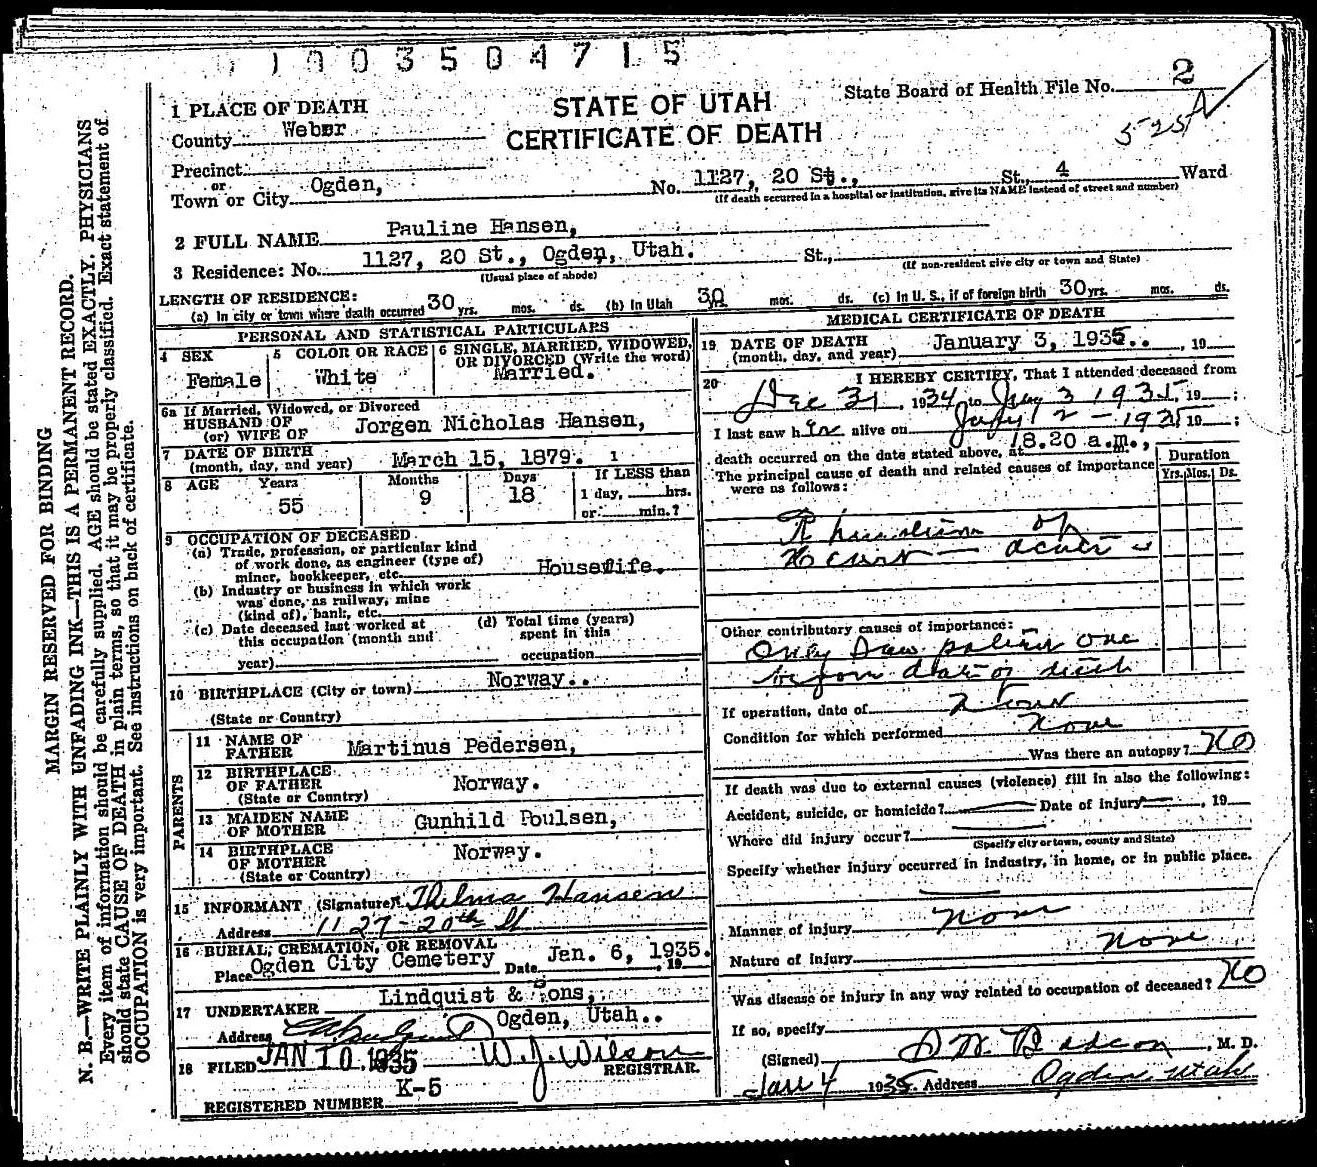 1003504715
STATE OF UTAH
CERTIFICATE OF DEATH
State Board of Health File No. 2
525
1 PLACE OF DEATH
County Weber
Precinct
or
Town or City Ogden, No. 1127, 20 St., St., 4 Ward
(If death occurred in a hospital or institution, give its NAME instead of street and number)
2 FULL NAME Pauline Hansen,
3 Residence: No. 1127, 20 St., Ogden, Utah. St.,
(Usual place of abode) (If non-resident give city or town and State)
LENGTH OF RESIDENCE:
(a) In city or town where death occurred 30 yrs. mos. ds. (b) In Utah 30 yrs. mos. ds. (c) In U. S., if of foreign birth 30 yrs. mos. ds.
PERSONAL AND STATISTICAL PARTICULARS
4 SEX
Female
5 COLOR OR RACE
White
6 SINGLE, MARRIED, WIDOWED,
OR DIVORCED (Write the word)
Married.
6a If Married, Widowed, or Divorced
HUSBAND OF
(or) WIFE OF Jorgen Nicholas Hansen,
7 DATE OF BIRTH
(month, day, and year) March 15, 1879.
8 AGE Years Months Days If LESS than
55 9 18 1 day, hrs.
or min.?
9 OCCUPATION OF DECEASED
(a) Trade, profession, or particular kind
of work done, as engineer (type of)
miner, bookkeeper, etc. Housewife.
(b) Industry or business in which work
was done, as railway, mine
(kind of), bank, etc.
(c) Date deceased last worked at
this occupation (month and
year)
(d) Total time (years)
spent in this
occupation
10 BIRTHPLACE (City or town) Norway..
(State or Country)
PARENTS
11 NAME OF
FATHER Martinus Pedersen,
12 BIRTHPLACE
OF FATHER Norway.
(State or Country)
13 MAIDEN NAME
OF MOTHER Gunhild Poulsen,
14 BIRTHPLACE
OF MOTHER Norway.
(State or Country)
15 INFORMANT (Signature) Thelma Hansen
Address 1127-20th St
16 BURIAL, CREMATION, OR REMOVAL
Place Ogden City Cemetery Date Jan. 6, 1935. , 19
17 UNDERTAKER Lindquist & Sons,
Address Ogden, Utah..
18 FILED JAN 10 1935 W. J. Wilson
REGISTRAR.
REGISTERED NUMBER K-5
MEDICAL CERTIFICATE OF DEATH
19 DATE OF DEATH
(month, day, and year) January 3, 1935.. , 19
20 I HEREBY CERTIFY, That I attended deceased from
Dec 31, 1934, to Jany 3 1935, 19 ;
I last saw her alive on Jany 2 - 1935 19 ;
death occurred on the date stated above, at 8.20 a.m.,
The principal cause of death and related causes of importance
were as follows:
Duration
Yrs. Mos. Ds.
Rheumatism of
Heart - acute
Other contributory causes of importance:
Only saw patient once
before date of death
If operation, date of None
Condition for which performed None
Was there an autopsy? No
If death was due to external causes (violence) fill in also the following:
Accident, suicide, or homicide? Date of injury , 19
Where did injury occur?
(Specify city or town, county and State)
Specify whether injury occurred in industry, in home, or in public place.
Manner of injury None
Nature of injury None
Was disease or injury in any way related to occupation of deceased? No
If so, specify
(Signed) , M. D.
Jan 4 1935 Address Ogden, Utah
MARGIN RESERVED FOR BINDING
N. B.—WRITE PLAINLY WITH UNFADING INK—THIS IS A PERMANENT RECORD.
Every item of information should be carefully supplied. AGE should be stated EXACTLY. PHYSICIANS
should state CAUSE OF DEATH in plain terms, so that it may be properly classified. Exact statement of
OCCUPATION is very important. See instructions on back of certificate.